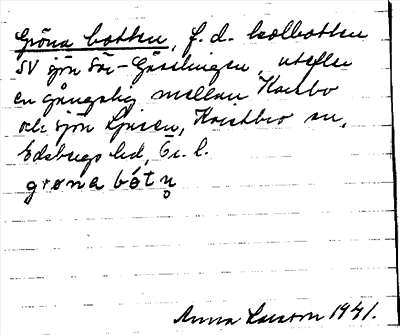 Gröna botten, f.d. kolbotten
SV sjön Sör-Gåsslingen, utefter
en gångstig mellan Korsbo
och sjön Ljusen, Horsbro sn,
Edsbergs hd, Ör. l.
grøna båtṇ
Anna Larsson 1941.